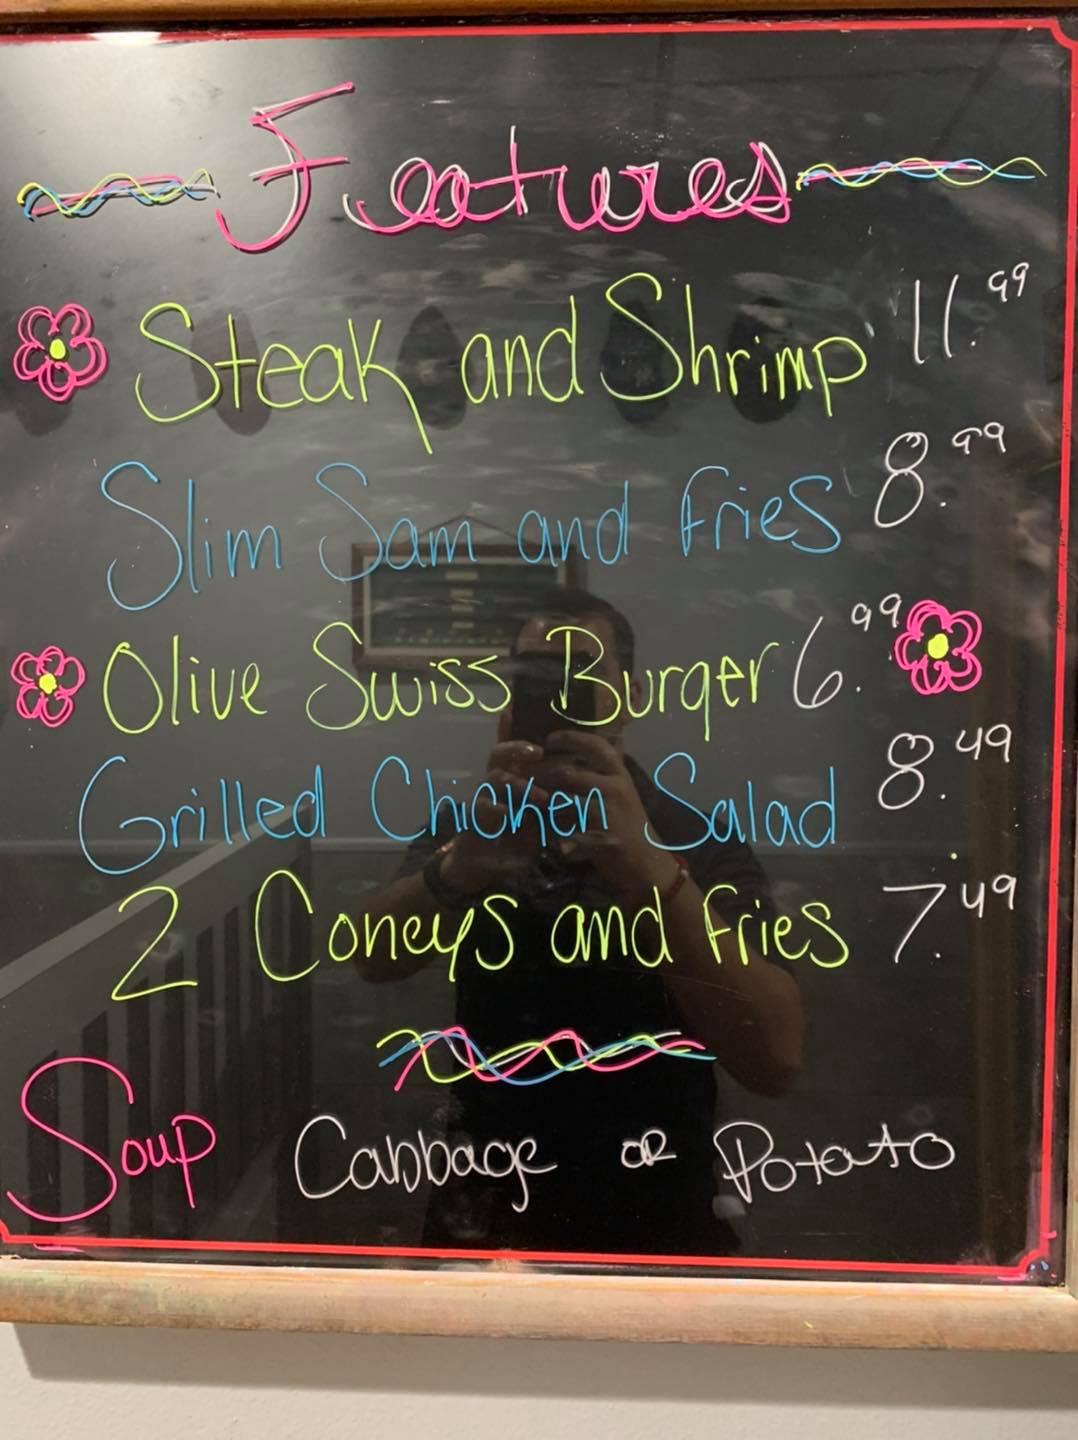 Features
Steak and Shrimp 11.99
Slim Sam and fries 8.99
Olive Swiss Burger 6.99
Grilled Chicken Salad 8.49
2 Coneys and fries 7.49
Soup Cabbage or Potato